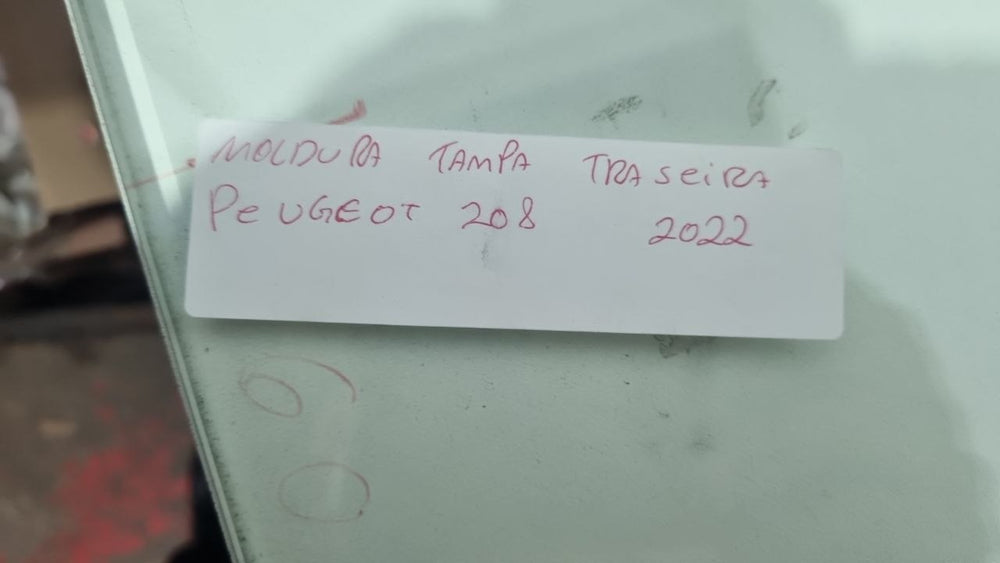 MOLDURA TAMPA TRASEIRA
PEUGEOT 208 2022